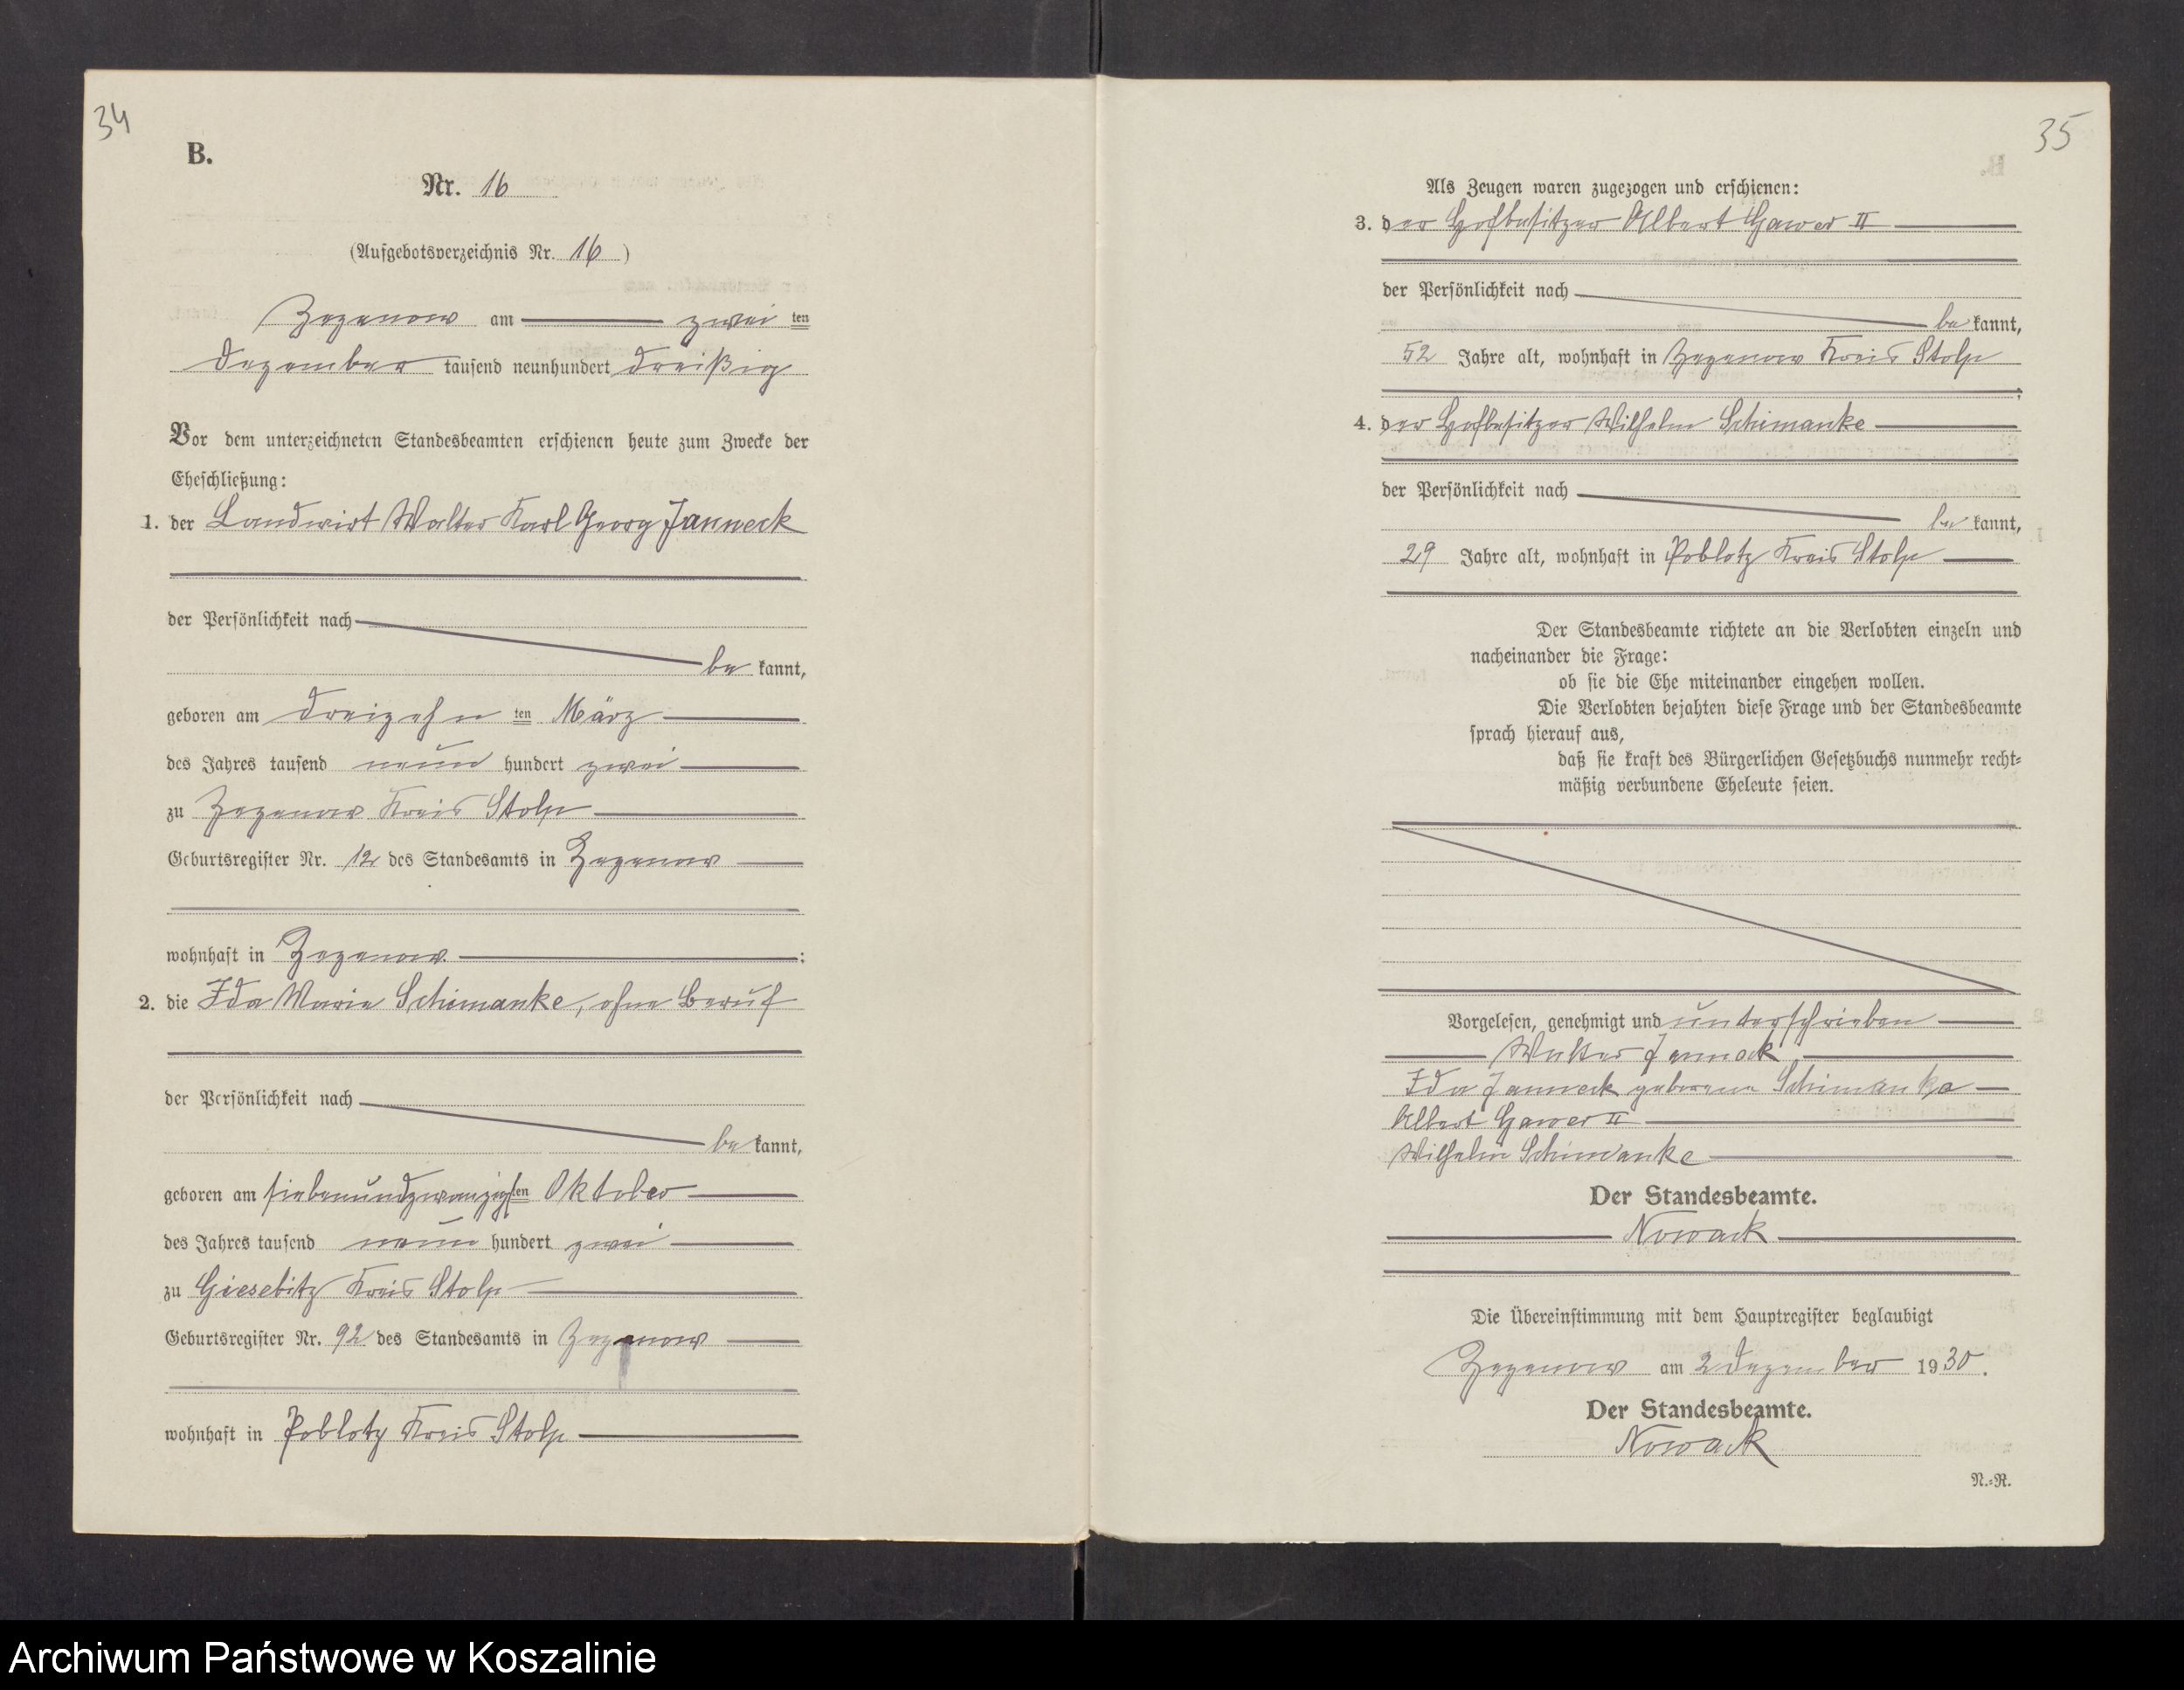 34
B.
Nr. 16
(Aufgebotsverzeichnis Nr. 16)
Zezenow am zwei ten
Dezember tausend neunhundert dreißig
Vor dem unterzeichneten Standesbeamten erschienen heute zum Zwecke der
Eheschließung:
1. der Landwirt Walter Karl Georg Janneck
der Persönlichkeit nach
be kannt,
geboren am dreizehn ten März
des Jahres tausend neun hundert zwei
zu Zezenow Kreis Stolp
Geburtsregister Nr. 12 des Standesamts in Zezenow
wohnhaft in Zezenow :
2. die Ida Marie Schimanke, ohne Beruf
der Persönlichkeit nach
be kannt,
geboren am siebenundzwanzigsten Oktober
des Jahres tausend neun hundert zwei
zu Giesebitz Kreis Stolp
Geburtsregister Nr. 92 des Standesamts in Zezenow
wohnhaft in Poblotz Kreis Stolp
35
Als Zeugen waren zugezogen und erschienen:
3. der Hofbesitzer Albert Gawer II
der Persönlichkeit nach
be kannt,
52 Jahre alt, wohnhaft in Zezenow Kreis Stolp
;
4. der Hofbesitzer Wilhelm Schimanke
der Persönlichkeit nach
be kannt,
29 Jahre alt, wohnhaft in Poblotz Kreis Stolp
Der Standesbeamte richtete an die Verlobten einzeln und
nacheinander die Frage:
ob sie die Ehe miteinander eingehen wollen.
Die Verlobten bejahten diese Frage und der Standesbeamte
sprach hierauf aus,
daß sie kraft des Bürgerlichen Gesetzbuchs nunmehr recht=
mäßig verbundene Eheleute seien.
Vorgelesen, genehmigt und unterschrieben
Walter Janneck
Ida Janneck geborene Schimanke
Albert Gawer II
Wilhelm Schimanke
Der Standesbeamte.
Nowack
Die Übereinstimmung mit dem Hauptregister beglaubigt
Zezenow am 2 Dezember 1930.
Der Standesbeamte.
Nowack
N.=R.
Archiwum Państwowe w Koszalinie